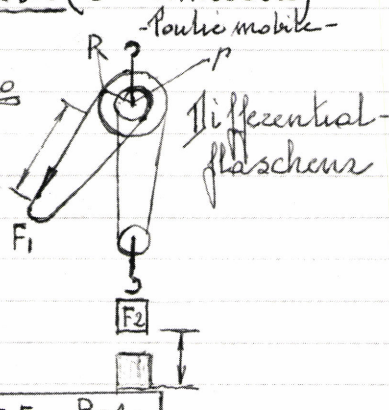 -Poulie mobile-
R
r
Differential-
flaschenz
F1
F2